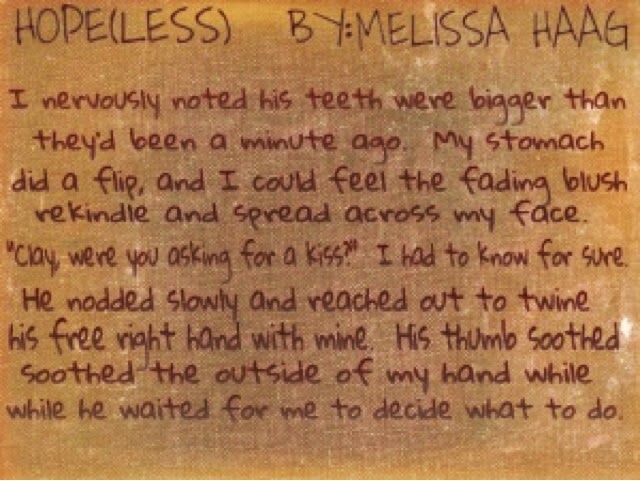 HOPE(LESS) BY:MELISSA HAAG
I nervously noted his teeth were bigger than
they'd been a minute ago. My stomach
did a flip, and I could feel the fading blush
rekindle and spread across my face.
"Clay, were you asking for a kiss?" I had to know for sure.
He nodded slowly and reached out to twine
his free right hand with mine. His thumb soothed
soothed the outside of my hand while
while he waited for me to decide what to do.